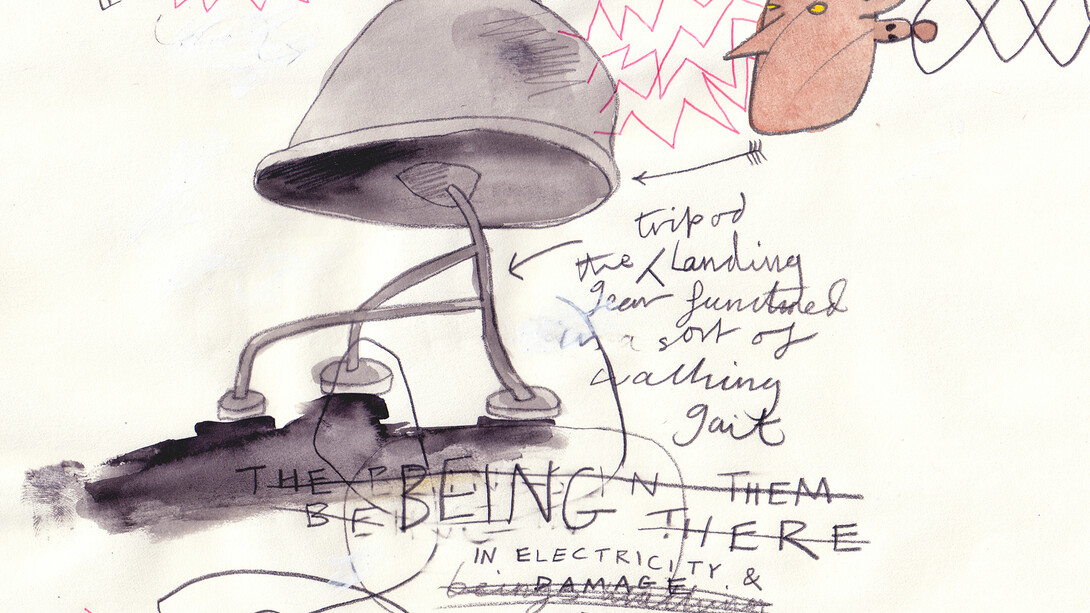 tripod
the Landing
gear functioned
in a sort of
walking
gait
THE BEING N THEM
BE THERE
IN ELECTRICITY &
DAMAGE